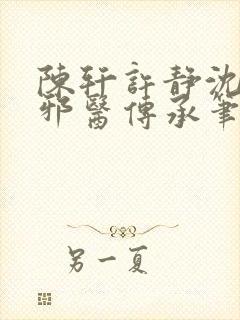 陳轩許静沈
邪醫傳承筆
另一夏